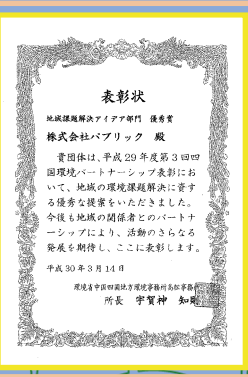 表彰状
地域課題解決アイデア部門　優秀賞
株式会社パブリック　殿
貴団体は、平成29年度第3回四
国環境パートナーシップ表彰にお
いて、地域の環境課題解決に資す
る優秀な提案をいただきました。
今後も地域の関係者とのパートナ
ーシップにより、活動のさらなる
発展を期待し、ここに表彰します。
平成30年3月14日
環境省中国四国地方環境事務所高松事務
所長　宇賀神　知